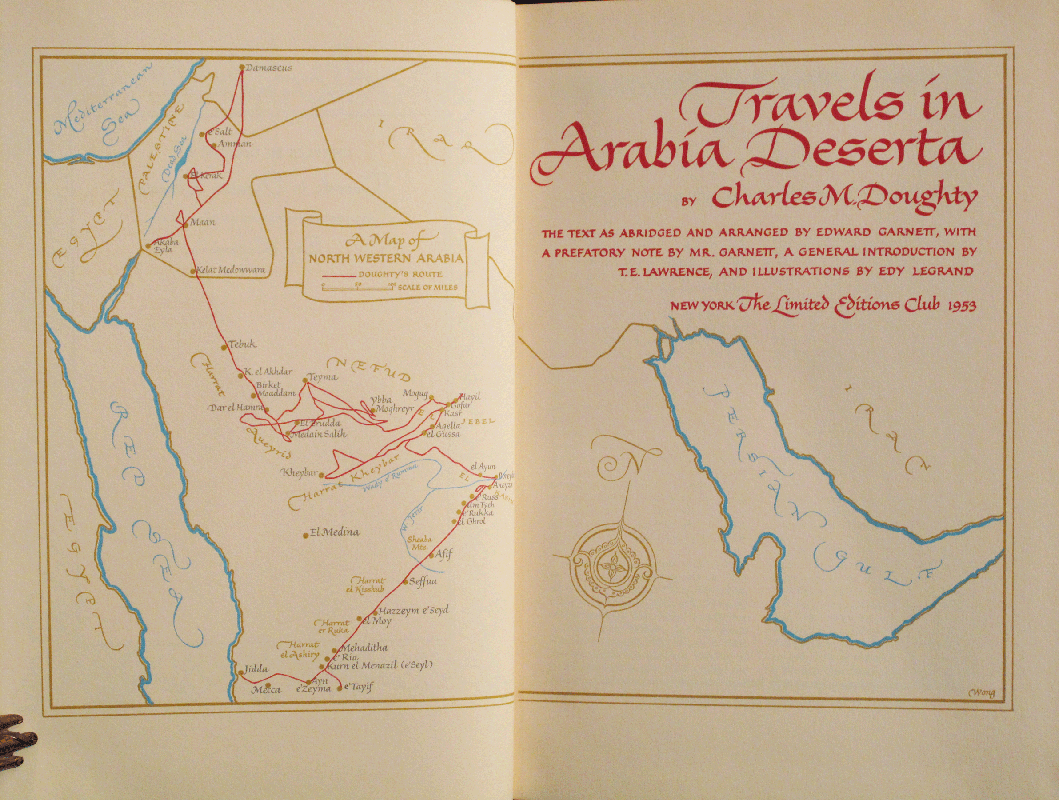 Mediterranean
Sea
Damascus
PALESTINE
Dead Sea
e'Salt
Amman
El Kerak
IRAQ
EGYPT
Maan
Akaba
Eyla
Kelat Medowwara
A Map of
NORTH WESTERN ARABIA
DOUGHTY'S ROUTE
SCALE OF MILES
Tebuk
Harrat
K. el Akhdar
Birket
Moaddam
Dar el Hamra
NEFUD
Teyma
Ybba
Moghreyr
Mogug
Hayil
Gofar
Kasr
JEBEL
El Gussa
Medain Salih
Aueyrid
Kheybar
Harrat Kheybar
el Ayun
EL
RED SEA
EGYPT
El Medina
Shaaba
Mts
Afif
Harrat
el Kisshub
Seffua
Hazzeym e'Seyd
el Moy
Harrat
er Rusa
Mehaditha
Harrat
e'Ria
Kurn el Menazil (e'Seyl)
Jidda
Mecca
Ayn
e'Zeyma
e'Tayif
Travels in
Arabia Deserta
BY Charles M. Doughty
THE TEXT AS ABRIDGED AND ARRANGED BY EDWARD GARNETT, WITH
A PREFATORY NOTE BY MR. GARNETT, A GENERAL INTRODUCTION BY
T. E. LAWRENCE, AND ILLUSTRATIONS BY EDY LEGRAND
NEW YORK The Limited Editions Club 1953
PERSIAN GULF
IRAN
N
Wong